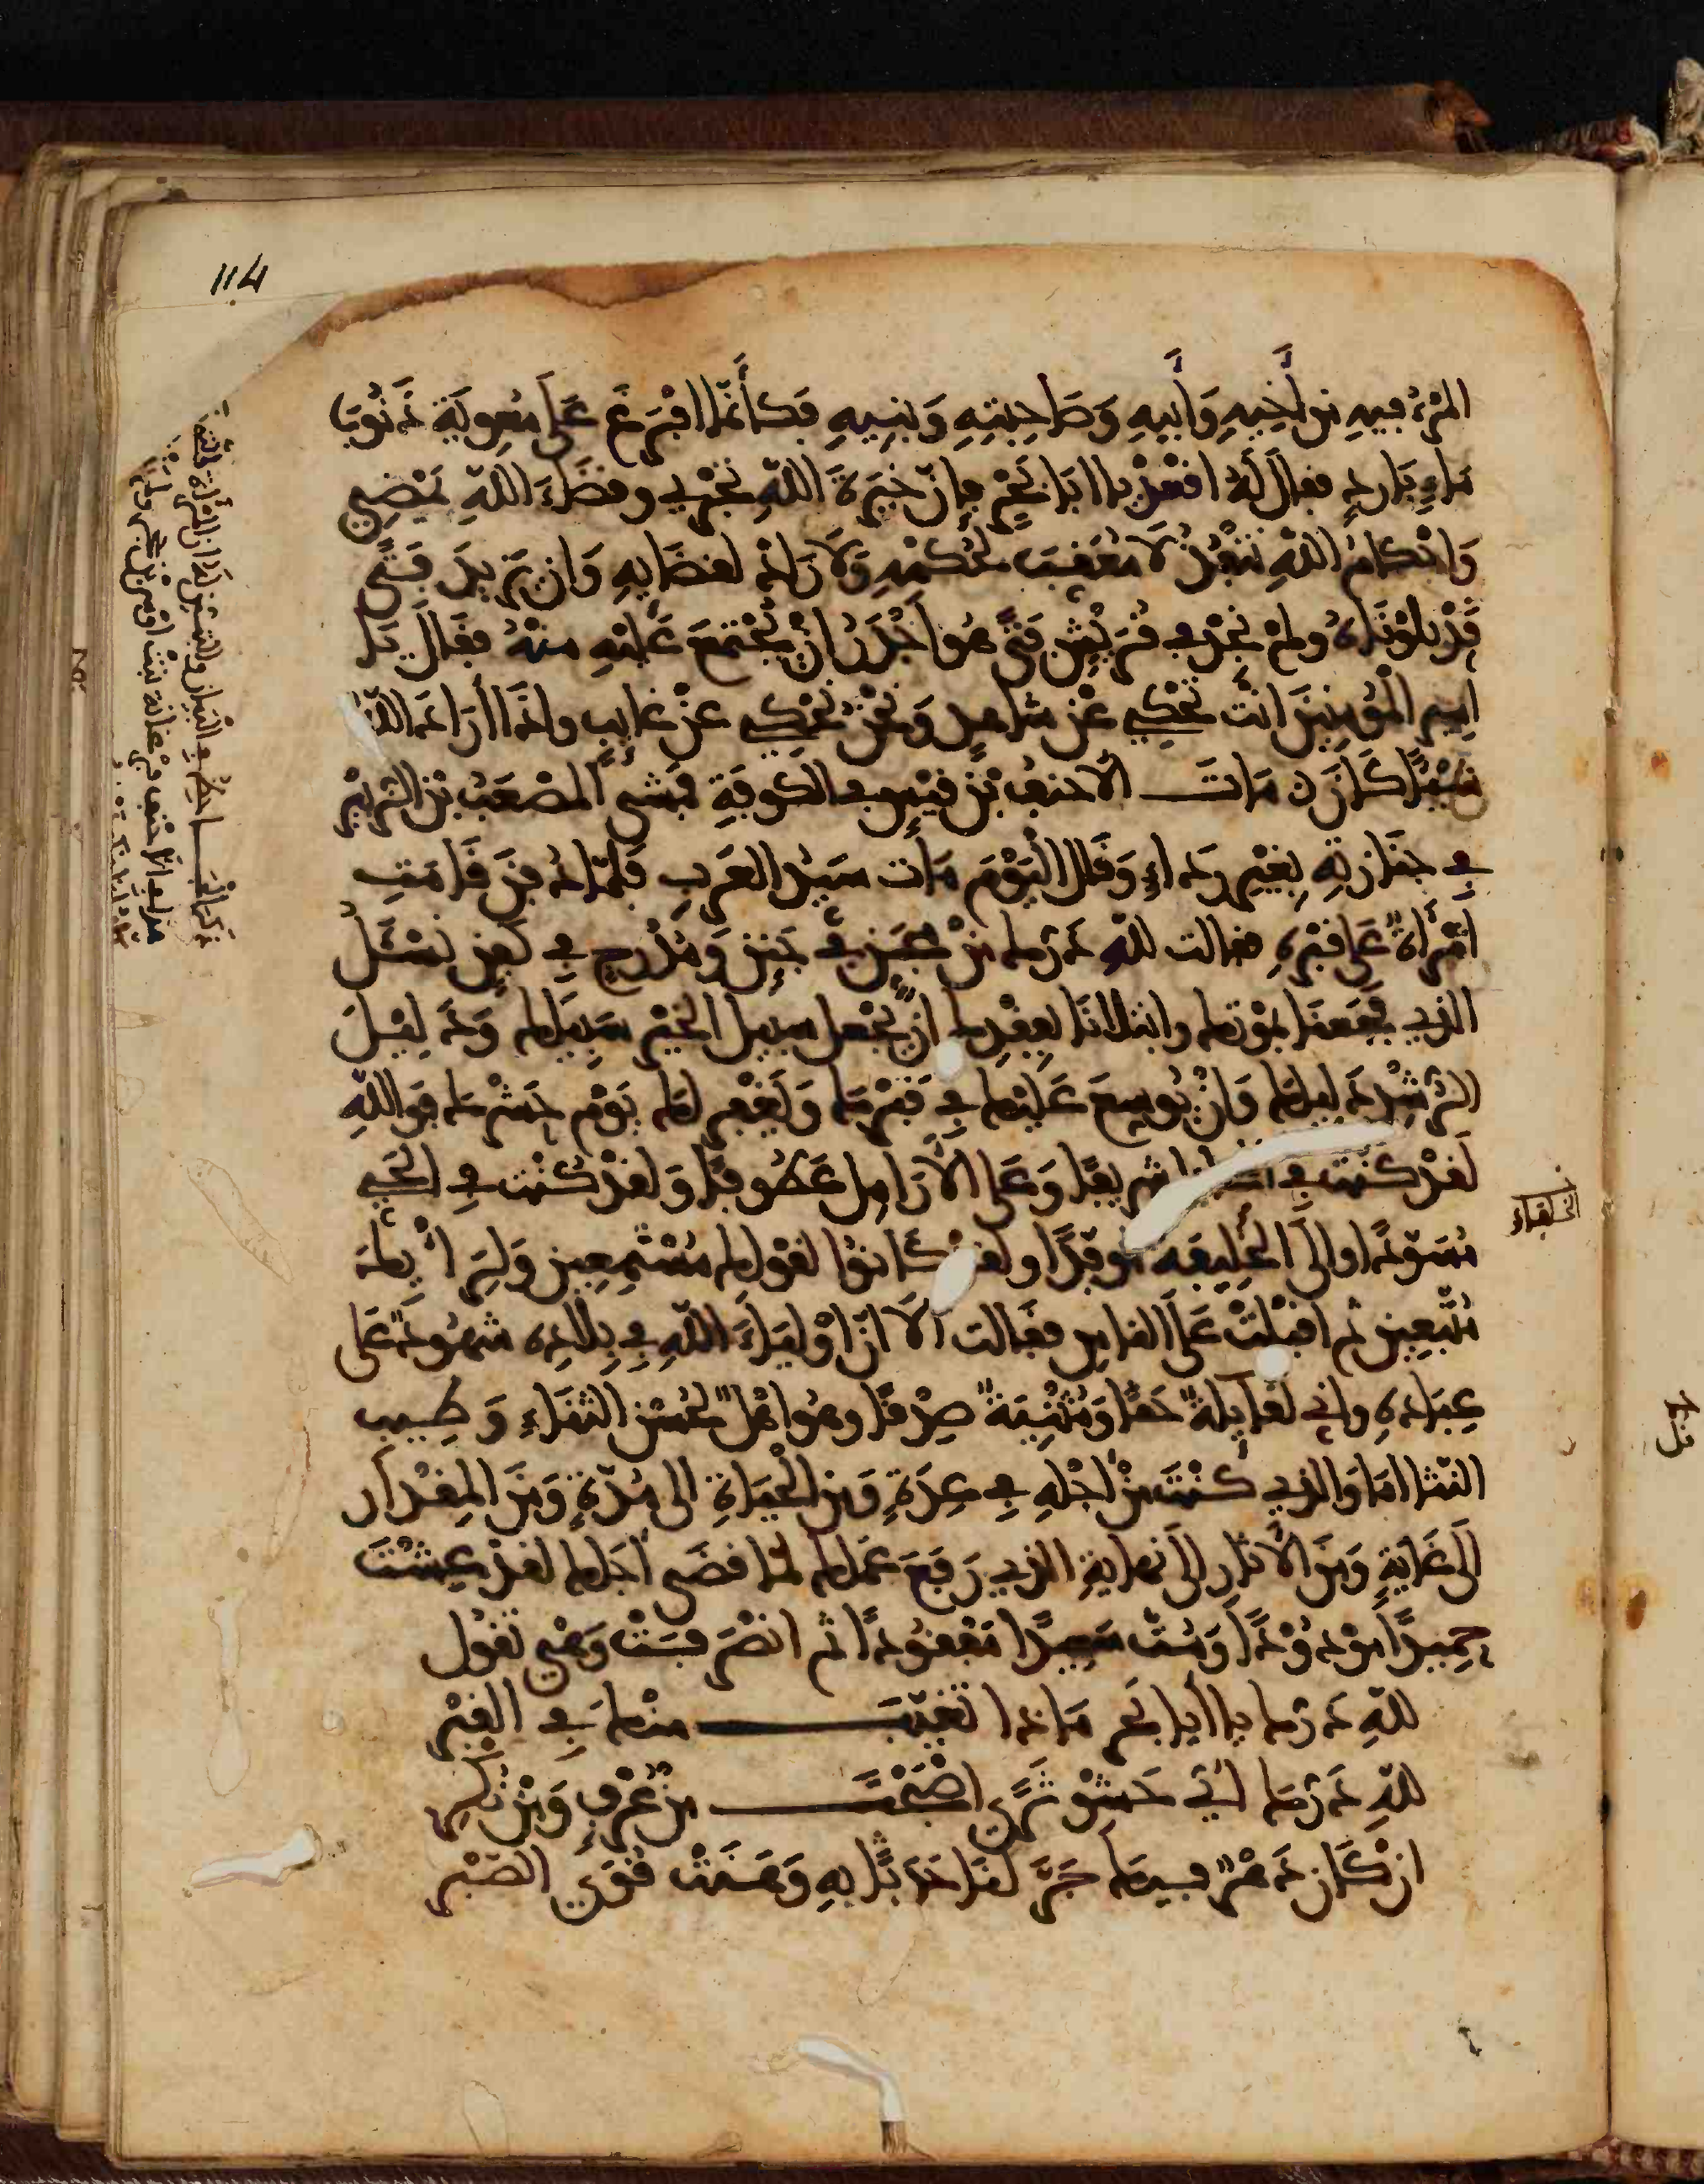 المرْءُ فيهِ من أَخِيهِ وَأَبيهِ وَصَاحِبتِهِ وَبَنِيهِ فكأنّما افْرَغَ عَلَى مُعٰوِيَة ذَنُوبَا
مَاءٍ بَارِدٍ فقال لَهُ اقعُدْ يا ابَا بَحْرٍ فإنّ خِيَرَةَ اللهِ تجْرِي وقضَاءَ اللهِ يَمْضِي
وَاحْكامُ اللهِ تنْفُذُ لا مُعَقِبَ لحُكمْهِ وَلا رَادَّ لقضَايِهِ وَان يَزيدَ فتًى
قَدْ بلوْنَاهُ ولمْ نجدْ في قُرَيْشٍ فتًى هُو أَجْدَرُ انْ يُجْتَمَعَ عَليْهِ منْهُ فقَالَ يَا
امِير المُؤْمِنِينَ انْت تحْكِي عَنْ شاهِدٍ وَنَحْنُ نحْكِي عَنْ غايِبٍ واذَا أرَادَ اللهُ
شَيْئًا كَانَ ٥ مَاتَ الأحنفُ بْن قيْسٍ في الكوفَةِ فمشَى المصْعَبُ بْن الزبَيْرِ
في جنَازتِهِ بغيْرِ رِدَاءٍ وَقَال اليَوْمَ مَات سَيّدُ العَرَبِ فلمّا دُفِنَ قَامَتِ
امْرأةٌ عَلى قبْرِهِ فقالت للهِ دَرُّكَ مِنْ مُجَنٍّ في جَنَنٍ وَمُدْرَجٍ في كَفَنٍ نَسْئَلُ
الذِي فجَعَنَا بمَوْتِكَ وابتلانَا بفقْدِكَ انْ يجْعل سبيل الخيْرِ سَبِيلَك وَدَلِيْلَ
الرُشْدِ دَلِيلَكَ وَانْ يُوسِعَ عَليْكَ في قَبْرِكَ وَيَغْفِر لك يَوْم حَشْرِك فوَاللهِ
لَقدْ كنْت في شريفًا وَعَلى الأرَامِل عَطُوفًا وَلقدْ كُنْت في الحَيِّ
مُسَوَّدًا والى الخَلِيفَة مُوفَدًا ولقدْ كانوُا لقوْلِك مُسْتَمِعِين وَلِرَأْيِكَ
مُتّبِعِين ثم اقبَلتْ عَلَى الناسِ فقَالت ألا انّ اوْليَاءَ اللهِ في بِلادِهِ شُهُودٌ عَلى
عِبَادِهِ واني لقَايِلةٌ حَقًّا وَمُثْنِيَةٌ صِدْقًا وهُو اهْلٌ لحُسْن الثنَاءِ وَطِيبِ
النثَا امَا وَالذِي كُنْتَ مِنْ أَجَلِهِ في عِدَةٍ وَمِن الحَيَاةِ الى مُدّةٍ وَمِنَ المِقْدَارِ
الَى غَايَةٍ وَمِنَ الآثَارِ الَى نِهَايَةٍ الذِي رَفَعَ عَمَلك لمّا قضَى أجَلك لقدْ عِشْتَ
حَمِيدًا مَوْدُوْدًا وَمُتَّ سَعِيدًا مَفْقُودًا ثم انْصَرَفَتْ وَهْيَ تقُول
للهِ دَرُّكَ يا أبا بَحْرٍ مَاذا تَغَيّبَ منْكَ في القبْرِ
للهِ دَرُّكَ أيّ حَشْوِ ثَرًى اصْبَحْتَ مِنْ عُرْفٍ وَمِنْ نُكْرِ
ان كَانَ دَهْرٌ فيكَ جَرَّ لنَا حَدَثًا بِهِ وَهَنَتْ قُوَى الصَبْرِ
الخلفاء
114